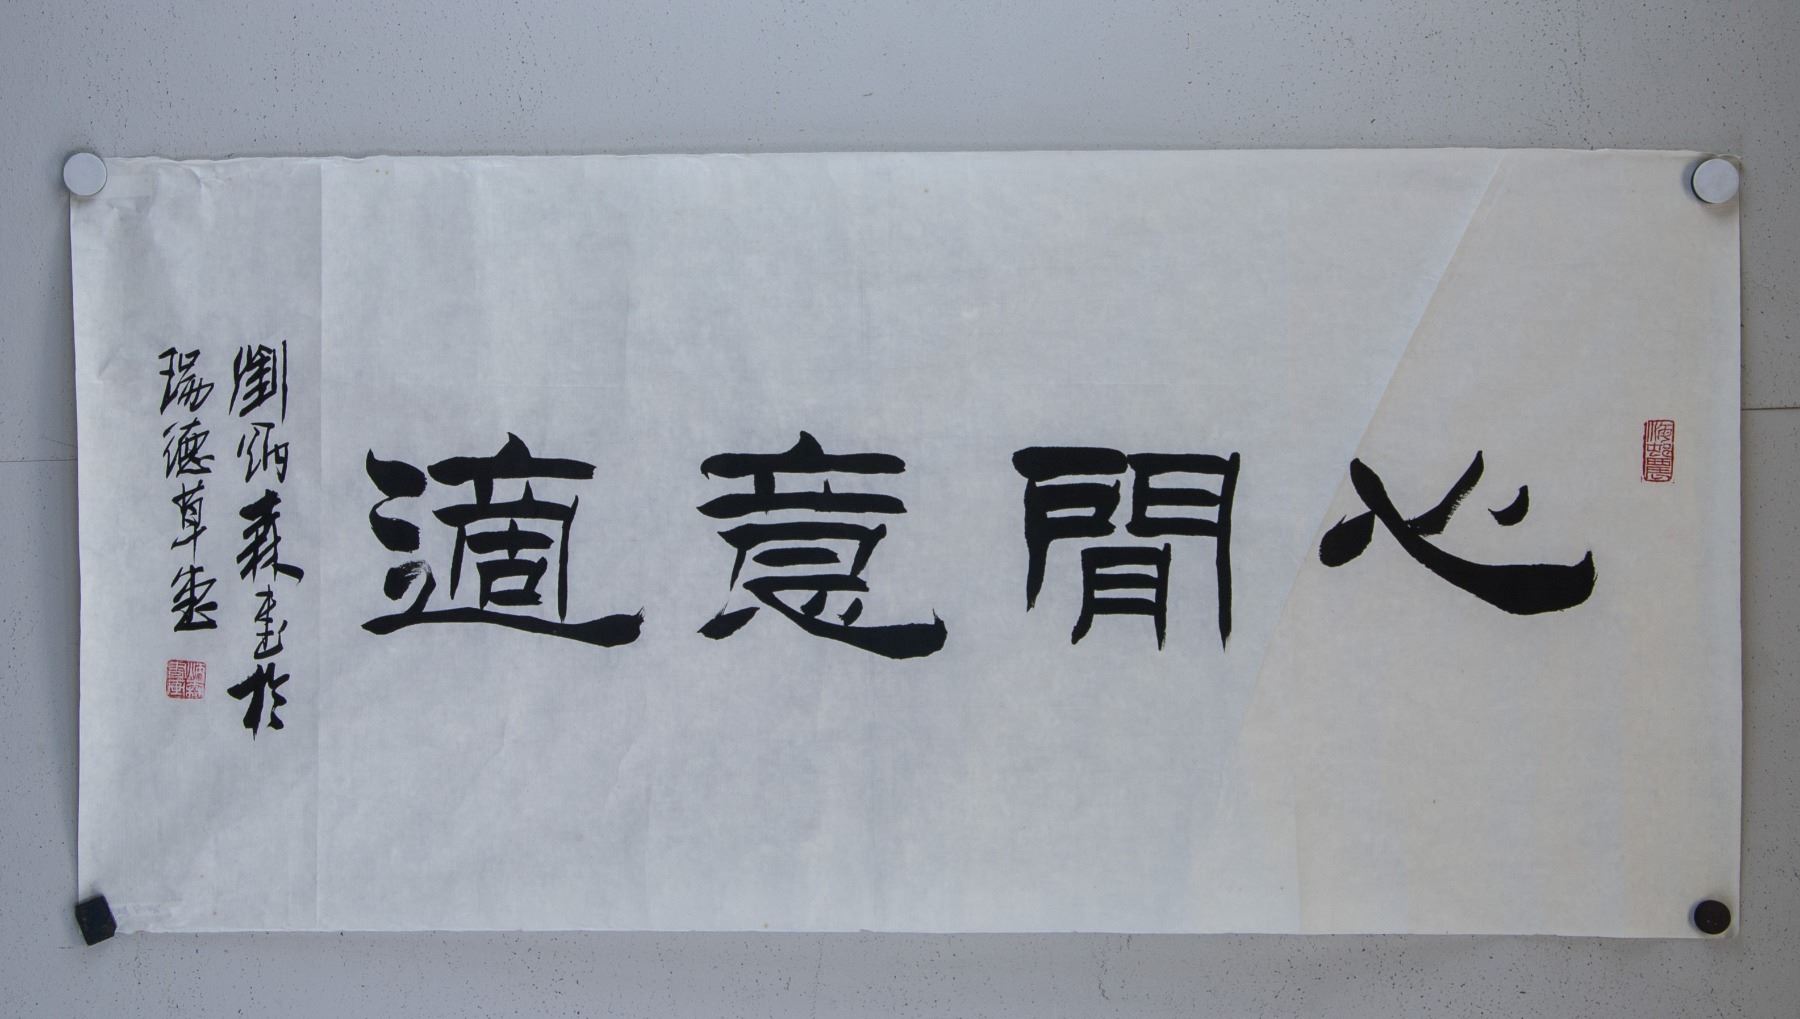 心閒意適
劉炳森書於
瑞德草堂